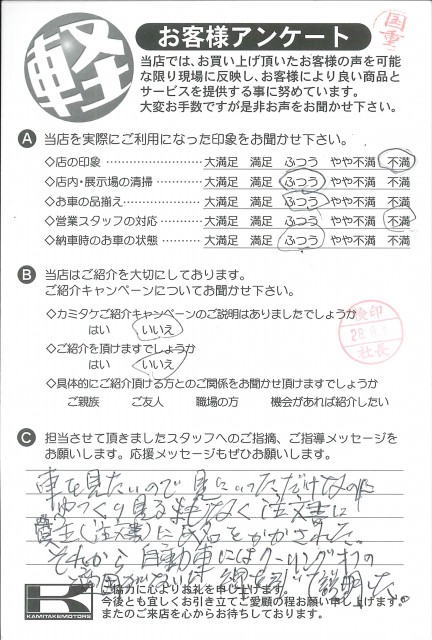 軽
お客様アンケート
国重
当店では、お買い上げ頂いたお客様の声を可能
な限り現場に反映し、お客様により良い商品と
サービスを提供する事に努めています。
大変お手数ですが是非お声をお聞かせ下さい。
A 当店を実際にご利用になった印象をお聞かせ下さい。
◇店の印象 …………………… 大満足 満足 ふつう やや不満 不満
◇店内・展示場の清掃 ………… 大満足 満足 ふつう やや不満 不満
◇お車の品揃え ……………… 大満足 満足 ふつう やや不満 不満
◇営業スタッフの対応 ………… 大満足 満足 ふつう やや不満 不満
◇納車時のお車の状態 ………… 大満足 満足 ふつう やや不満 不満
B 当店はご紹介を大切にしております。
ご紹介キャンペーンについてお聞かせ下さい。
◇カミタケご紹介キャンペーンのご説明はありましたでしょうか
はい いいえ
検印
28.
社長
◇ご紹介を頂けますでしょうか
はい いいえ
◇具体的にご紹介頂ける方とのご関係をお聞かせ頂けますでしょうか
ご親族 ご友人 職場の方 機会があれば紹介したい
C 担当させて頂きましたスタッフへのご指摘、ご指導メッセージを
お願いします。応援メッセージもぜひお願いします。
車を見たいので見にいっただけなのに
ゆっくり見る まもなく 注文書に
(注文書)に氏名をかかされた。
それから自動車にはクーリングオフの
がないと 線を引いて説明した。
K
KAMITAKEMOTORS
ご協力に心よりお礼を申し上げます。
今後とも宜しくお引き立てご愛顧の程お願い申し上げます。
またのご来店を心からお待ちしております。